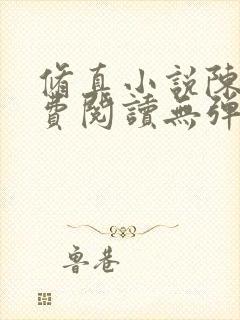 脩真小說陳
費閱讀無彈
魯巷